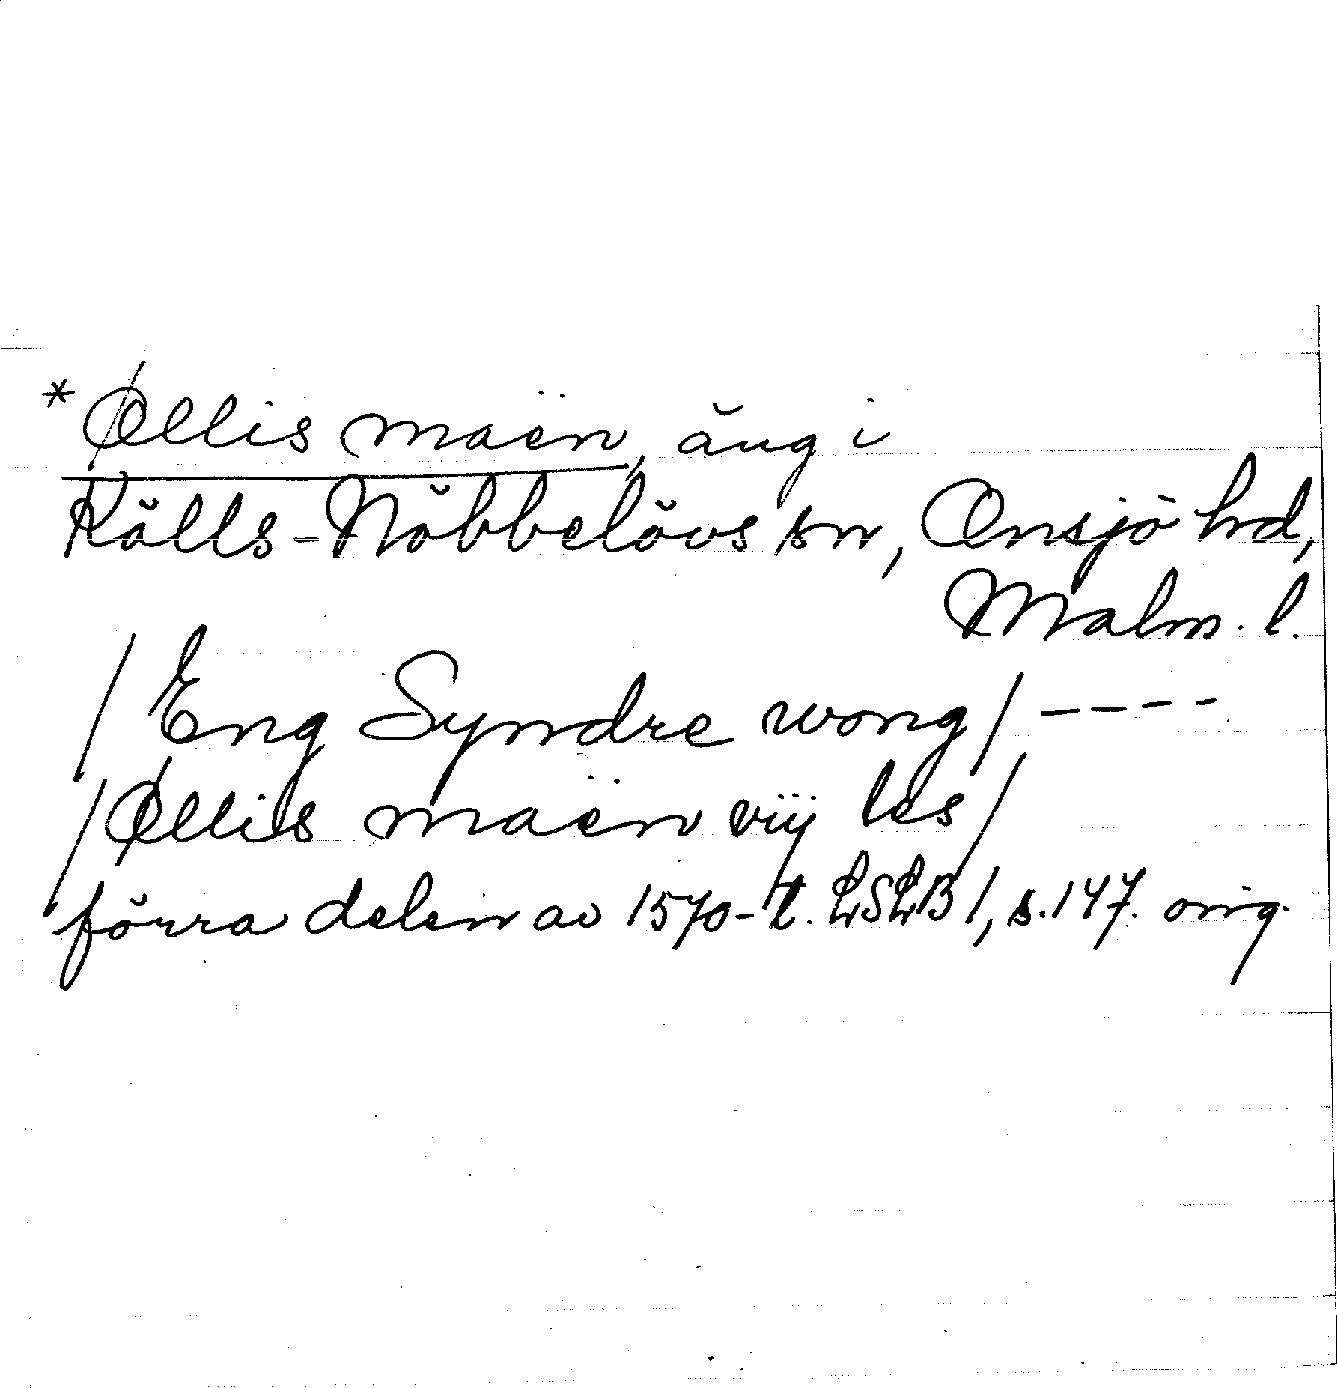 * Øllis maën, äng i
Källs-Nöbbelövs sn, Onsjö hd,
Malm. l.
/Eng Syndre wong/ ----
/Øllis maën vij les/
förra delen av 1570-t. LSLB 1, s. 147. orig.